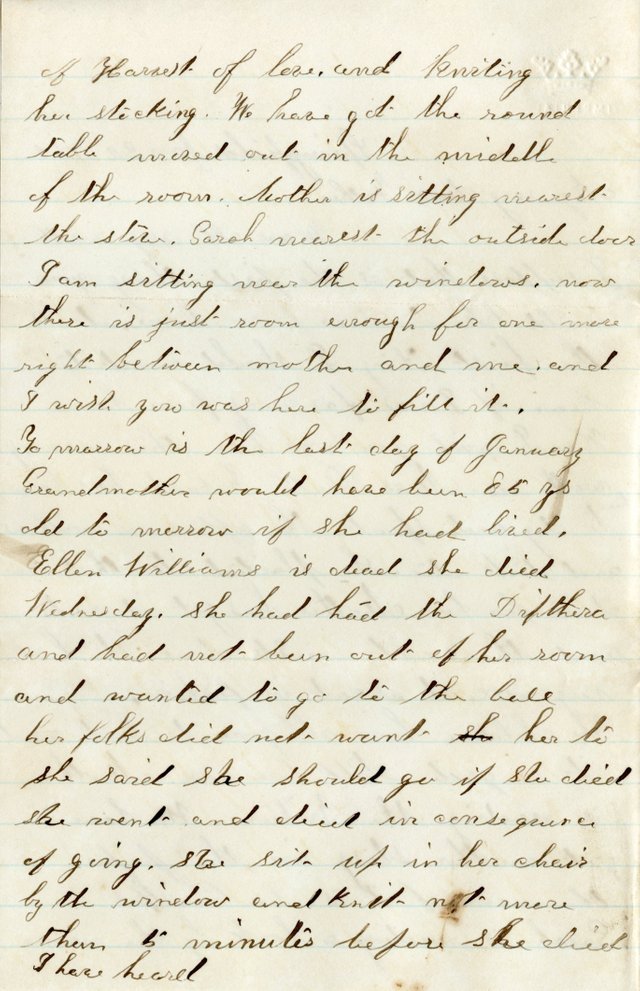 of Harvest of love, and kniting
her stocking. We have got the round
table moved out in the middle
of the room. Mother is sitting nearest
the stove. Sarah nearest the outside door
I am sitting near the windows. now
there is just room enough for one more
right between mother and me. and
I wish you was here to fill it.
To marrow is the last day of January
Grandmother would have been 85 ys
old to merrow if she had lived.
Ellen Williams is dead she died
Wednesday. she had had the Dipthera
and had not been out of her room
and wanted to go to the ball
her folks did not want sh her to
she said she should go if she died
she went and died in consequence
of going. she sit up in her chair
by the window and knit not more
than 5 minutes before she died
I have heard